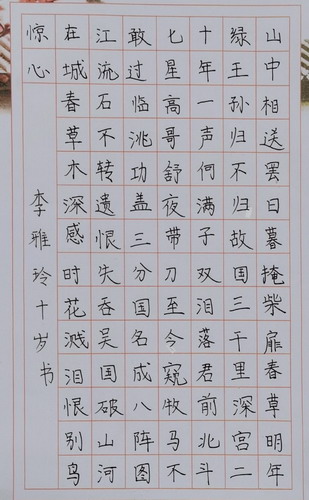 山中相送罢日暮掩柴扉春草明年
绿王孙归不归故国三千里深宫二
十年一声何满子双泪落君前北斗
七星高哥舒夜带刀至今窥牧马不
敢过临洮功盖三分国名成八阵图
江流石不转遗恨失吞吴国破山河
在城春草木深感时花溅泪恨别鸟
惊心
李雅玲十岁书